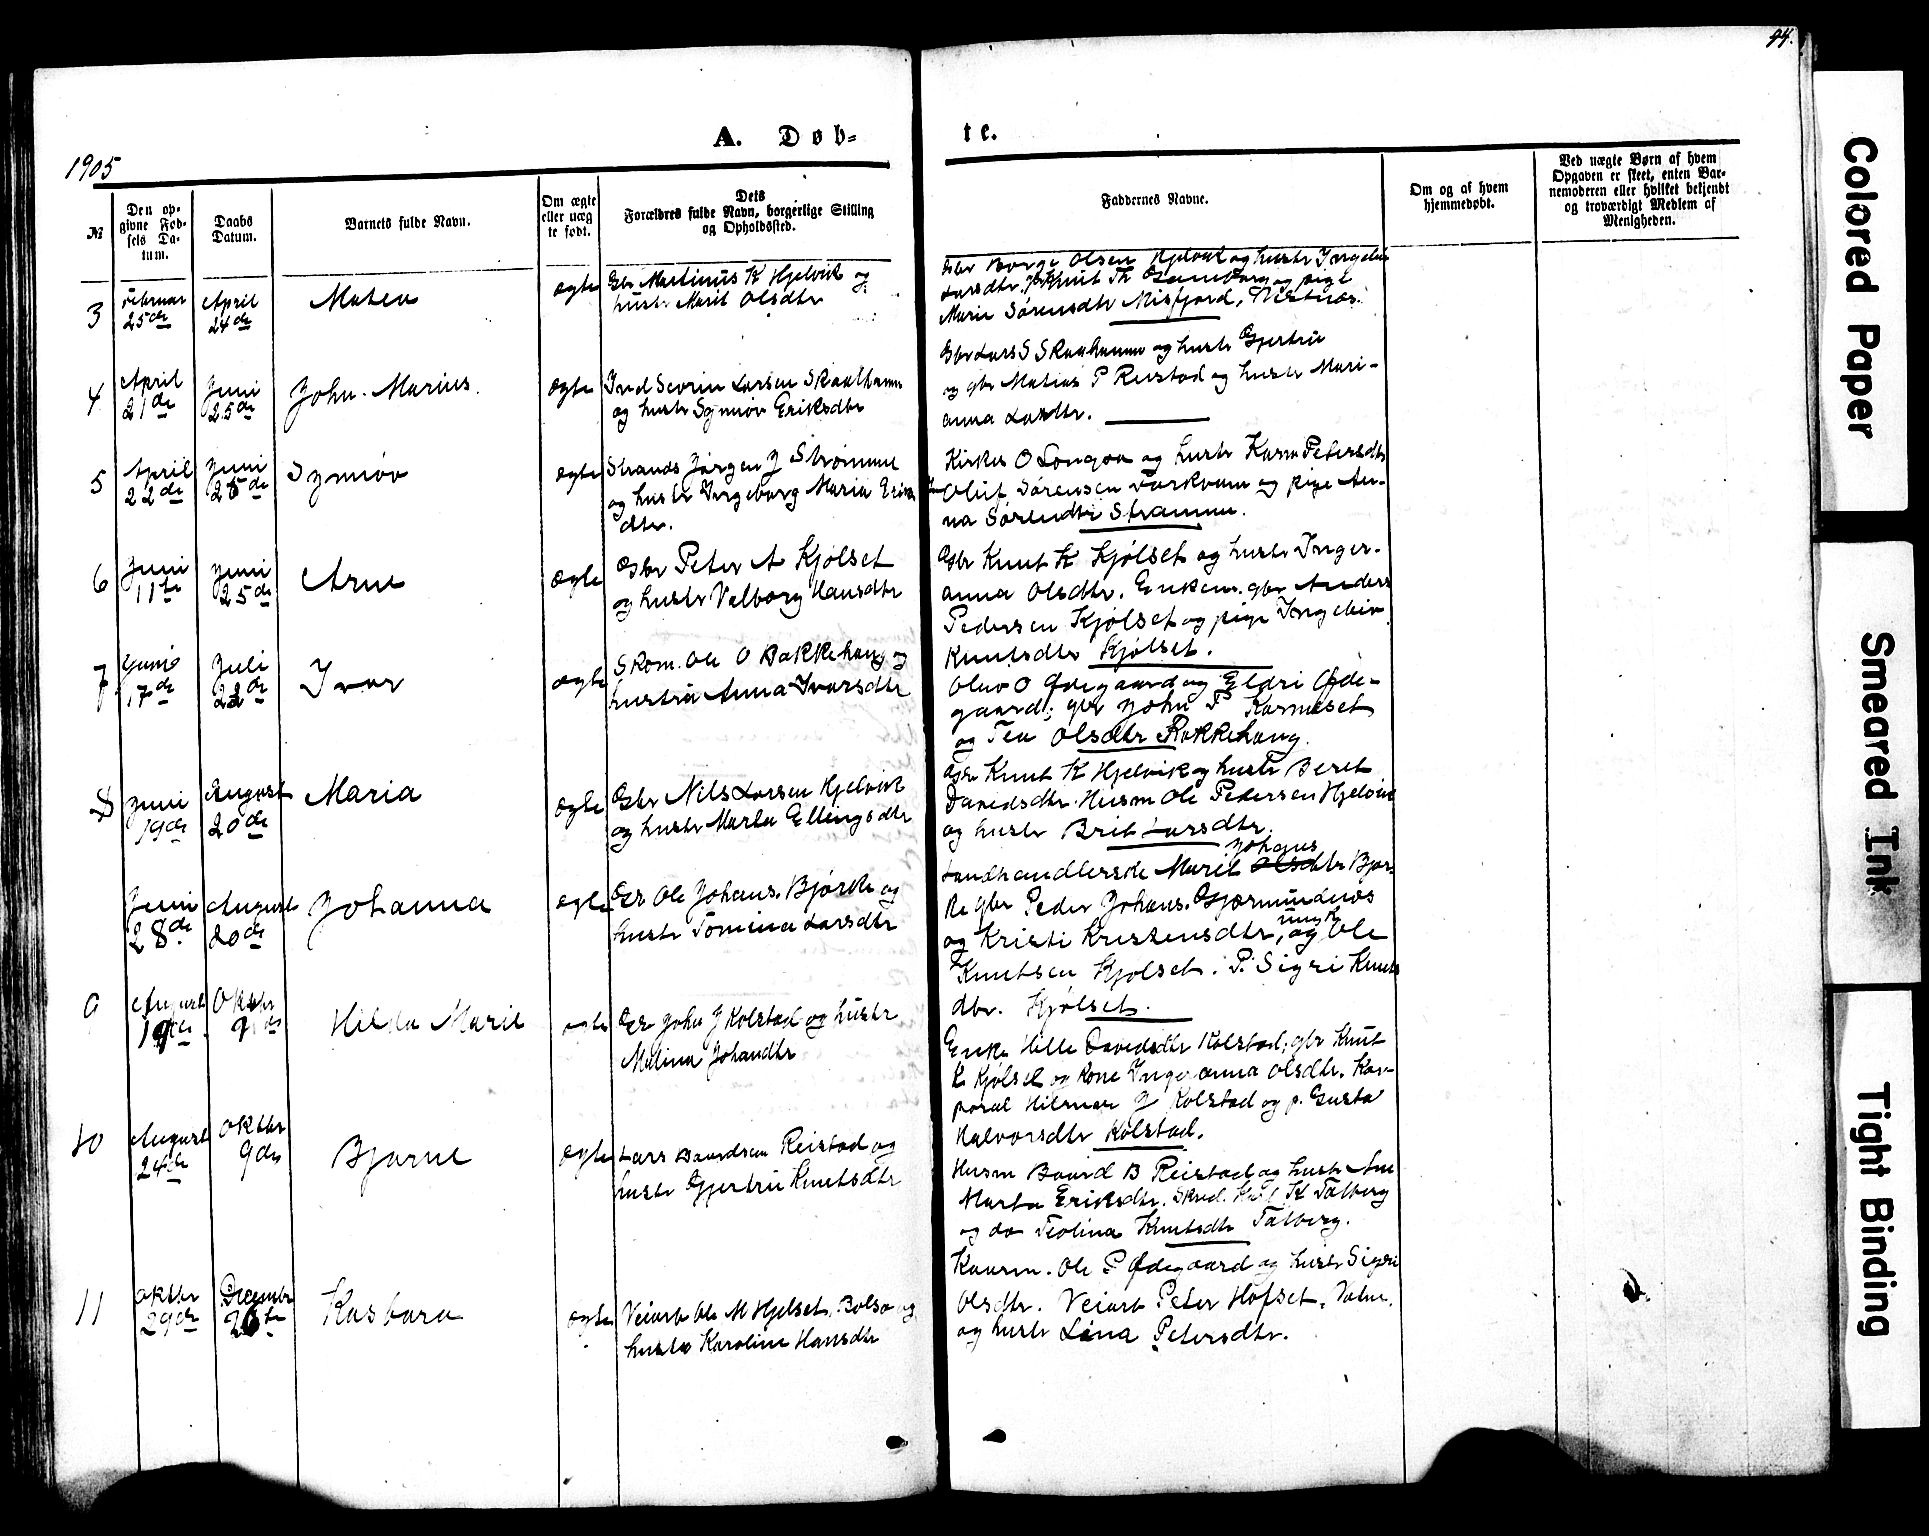 44.
A. Døb-
te.
1905
№
Den op-
givne Fød-
sels Da-
tum.
Daabs
Datum.
Barnets fulde Navn.
Om ægte
eller uæg
te født.
Dets
Forældres fulde Navn, borgerlige Stilling
og Opholdssted.
Faddernes Navne.
Om og af hvem
hjemmedøbt.
Ved uægte Børn af hvem
Opgaven er skeet, enten Bar-
nemoderen eller hvilket bekjendt
og troværdigt Medlem af
Menigheden.
3
Februar
25de
April
24de
Matea
ægte
Gbr Martinus K Hjelvik og
hustr Marit Olsdtr
Gbr Børge Olsen Hjelvik og hustr Ingebor
Larsdtr, Knut Th og pige
Marie Sørensdtr Misfjord, Vestnes.
4
April
21de
Juni
25de
John Marius.
ægte
Ind Sevrin Larsen Skaalhamn
og hustr Synnøv Eriksdtr
Gbr Lars S Skaalhamn og hustr Gjertrue
og gbr Matias P Reistad og hustr Mari-
anna Larsdtr.
5
April
22de
Juni
25de
Synnøv
ægte
Strands Jørgen J Strømme
og hustr Ingeborg Maria Eriks
dtr.
Kirkes O Longva og hustr Karen Petersdtr
Oluf Sørensen Torkvam og pige An-
na Sørensdtr Strømme.
6
Juni
11te
Juni
25de
Arne
ægte
Gbr Peter A Kjølset
og hustr Valborg Hansdtr
Gbr Knut K Kjølset og hustr Inger-
anna Olsdtr. Enkem. gbr Anders
Pedersen Kjølset og pige Ingebor
Knutsdtr Kjølset.
7
Juni
17de
Juli
22de
Ivar
ægte
Skom. Ole O Bakkehaug og
hustru Anna Ivarsdtr
Olav O Ødegaard og Eldri Øde-
gaard; gbr John P Karneset
og Tea Olsdtr Bakkehaug.
8
Juni
19de
August
20de
Maria
ægte
Gbr Nils Larsen Hjelvik
og hustr Marta Ellingsdtr
Gbr Knut K Hjelvik og hustr Beret
Davidsdtr. Husm Ole Pedersen Hjelvik
og hustr Brit Larsdtr.
Juni
28de
August
20de
Johanna
ægte
Gbr Ole Johans. Bjørke og
hustr Tomina Larsdtr
Johans
Landhandlerske Marit Olsdtr Bjør-
ke gbr Peder Johans. Gjermundnes
og Kristi Kristensdtr, ungk og Ole
Knutsen Kjølset. P. Sigri Knuts
dtr. Kjølset.
August
19de
Oktbr
9de
Hilda Marie
ægte
Gbr John J Kolstad og hustr
Malina Johandtr
Enke Hille Davidsdtr Kolstad; gbr Knut
K Kjølset og kone Inger anna Olsdtr. Kor-
poral Hilmar J Kolstad og p. Gusta
Halvorsdtr Kolstad.
10
August
24de
Oktbr
9de
Bjarne
ægte
Lars Baardsen Reistad og
hustr Gjertrue Knutsdtr
Husm Baard B Reistad og hustr Ane
Marta Eriksdtr. K Talberg
og do Teolina Knutsdtr Talberg.
11
Oktbr
29de
Decembr
26te
Kasbara
ægte
Veiarb Ole M Hjelset, Bolsø og
hustr Karoline Hansdtr
Kaarm. Ole P Ødegaard og hustr Sigri
Olsdtr. Veiarb Peter Hofset,
og hustr Lina Petersdtr.
Colored Paper
Smeared Ink
Tight Binding